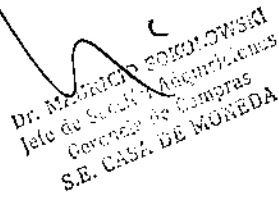 Dr. MAURICIO SOKOLOWSKI
Jefe de Adquisiciones
Gerencia de Compras
S.E. CASA DE MONEDA